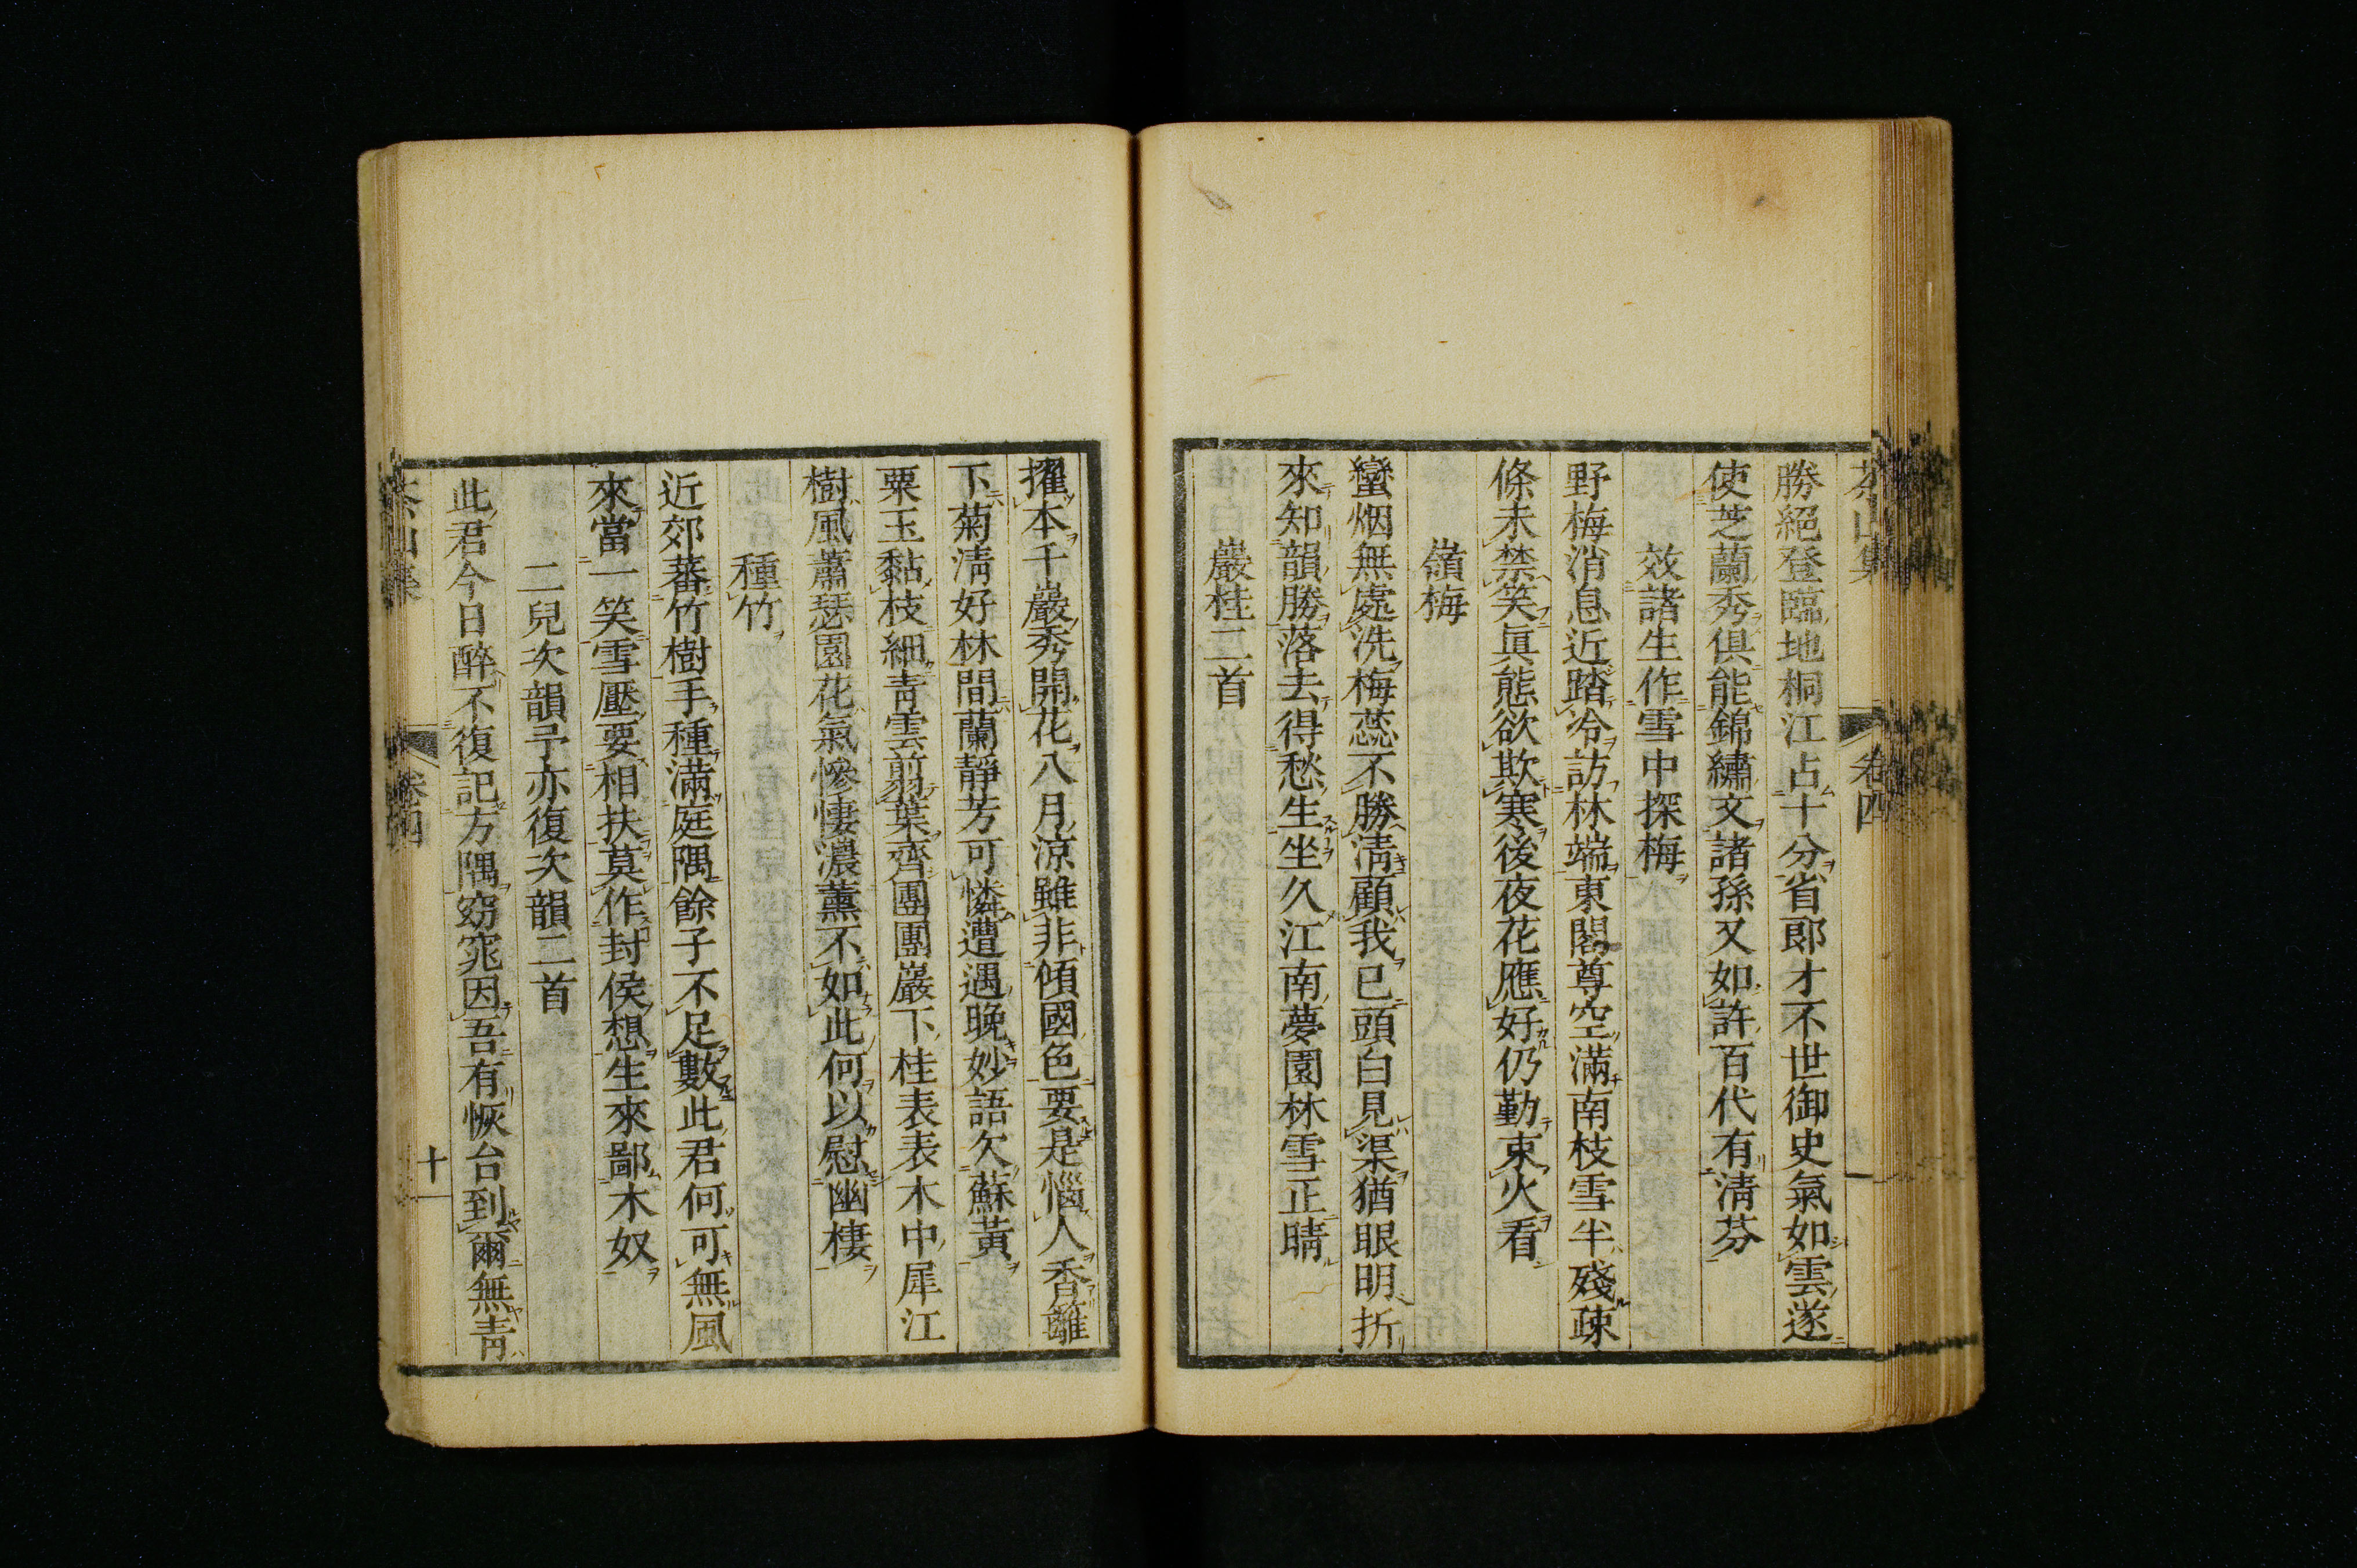 茶山集 卷四
勝絕登臨地桐江占十分省郎才不世御史氣如雲遂
使芝蘭秀俱能錦繡文諸孫又如許百代有清芬
效諸生作雪中探梅
野梅消息近踏冷訪林端東閣尊空滿南枝雪半殘疎
條未禁笑眞態欲欺寒後夜花應好仍勤束火看
嶺梅
蠻烟無處洗梅蕊不勝淸顧我已頭白見渠猶眼明折
來知韻勝落去得愁生坐久江南夢園林雪正晴
巖桂二首
擢本千巖秀開花八月凉雖非傾國色要是惱人香籬
下菊淸好林間蘭靜芳可憐遭遇晚妙語欠蘇黃
粟玉黏枝細靑雲翦葉齊團團巖下桂表表木中犀江
樹風蕭瑟園花氣慘悽濃薰不如此何以慰幽棲
種竹
近郊蕃竹樹手種滿庭隅餘子不足數此君何可無風
來當一笑雪壓要相扶莫作封侯想生來鄙木奴
二兒次韻予亦復次韻二首
此君今日醉不復記方隅窈窕因吾有恢台到爾無靑
茶山集 卷四 十